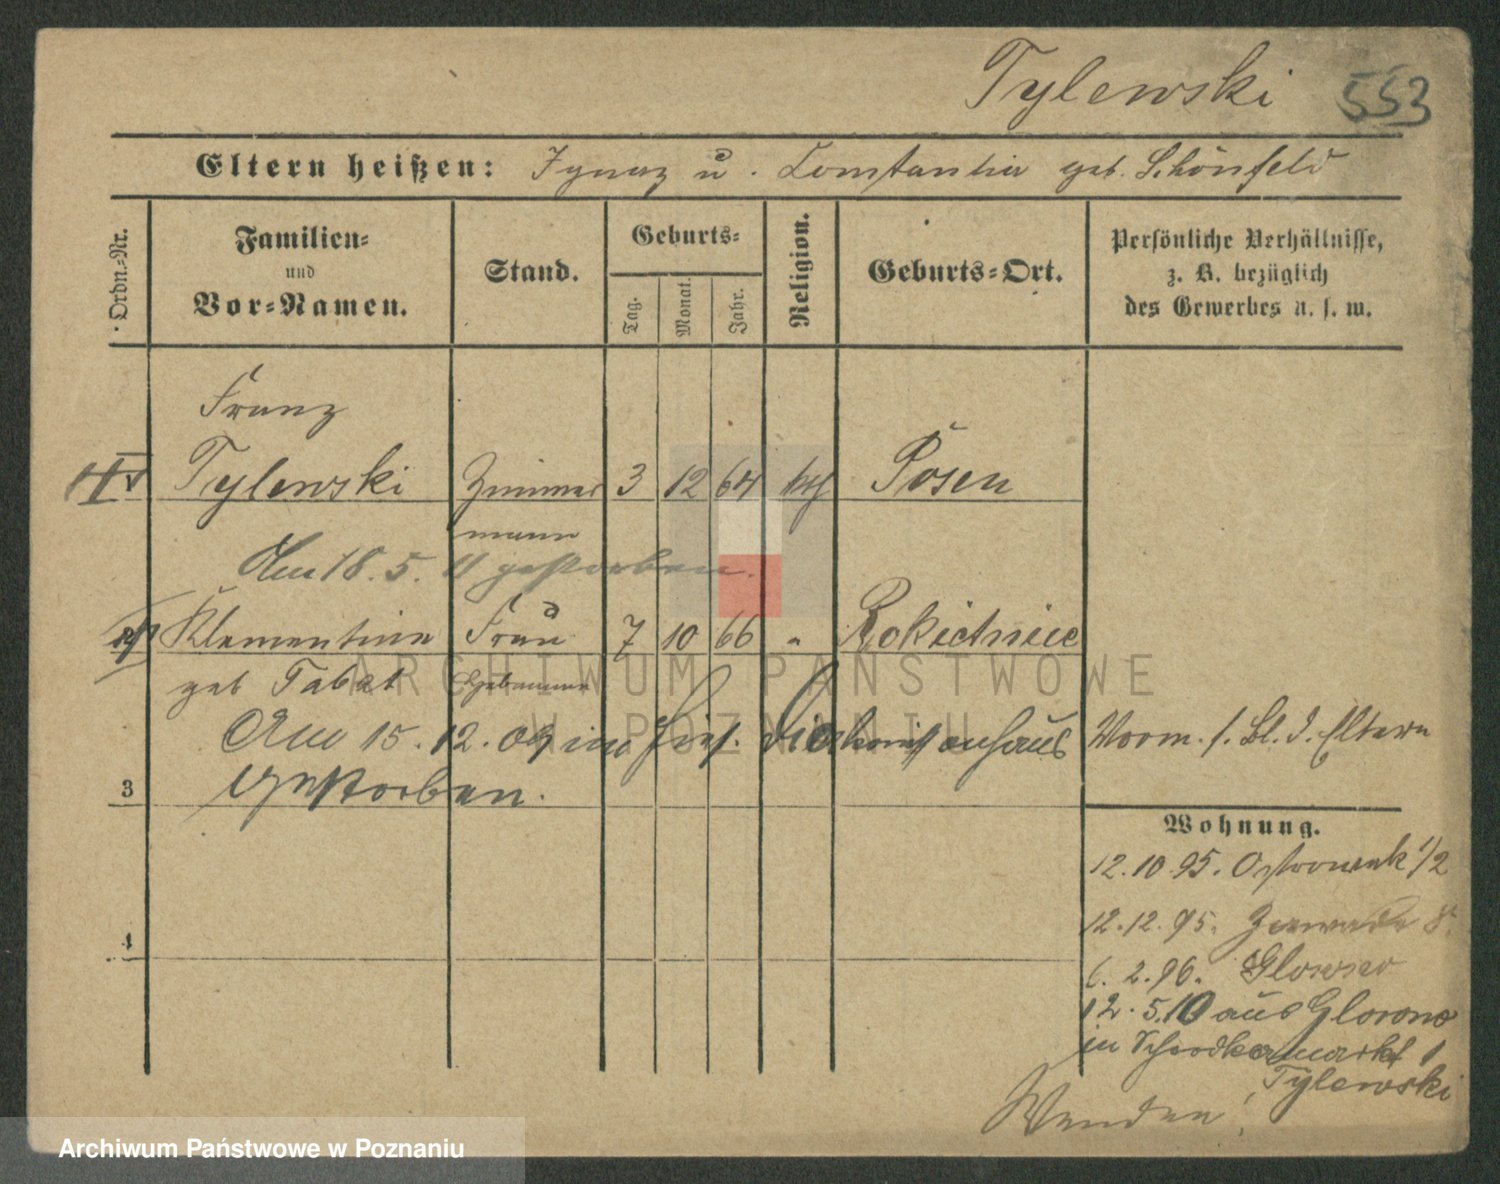 Tylewski 553
Eltern heißen: Ignaz u. Constantia geb. Schönfeld
Ordn.-Nr.
Familien-
und
Vor-Namen.
Stand.
Geburts-
Tag.
Monat.
Jahr.
Religion.
Geburts-Ort.
Persönliche Verhältnisse,
z. B. bezüglich
des Gewerbes u. s. w.
Franz
Tylewski Zimmer 3 12 64 kth Posen
mann
Am 18. 5. 11 gestorben.
Klementine Frau 7 10 66 " Rokietnice
geb Tabat
Am 15. 12. 09 im hies. Diakonissenhaus
gestorben.
Vorm. s. Bl. d. Eltern
3
4
Wohnung.
12. 10. 95. Ostrowek 1/2
12. 12. 95. Zawade 8.
6. 2. 96. Glowno
12. 5. 10 aus Glowno
in Schrodkamarkt 1
Tylewski
Wenden!
ARCHIWUM PAŃSTWOWE
W POZNANIU
Archiwum Państwowe w Poznaniu